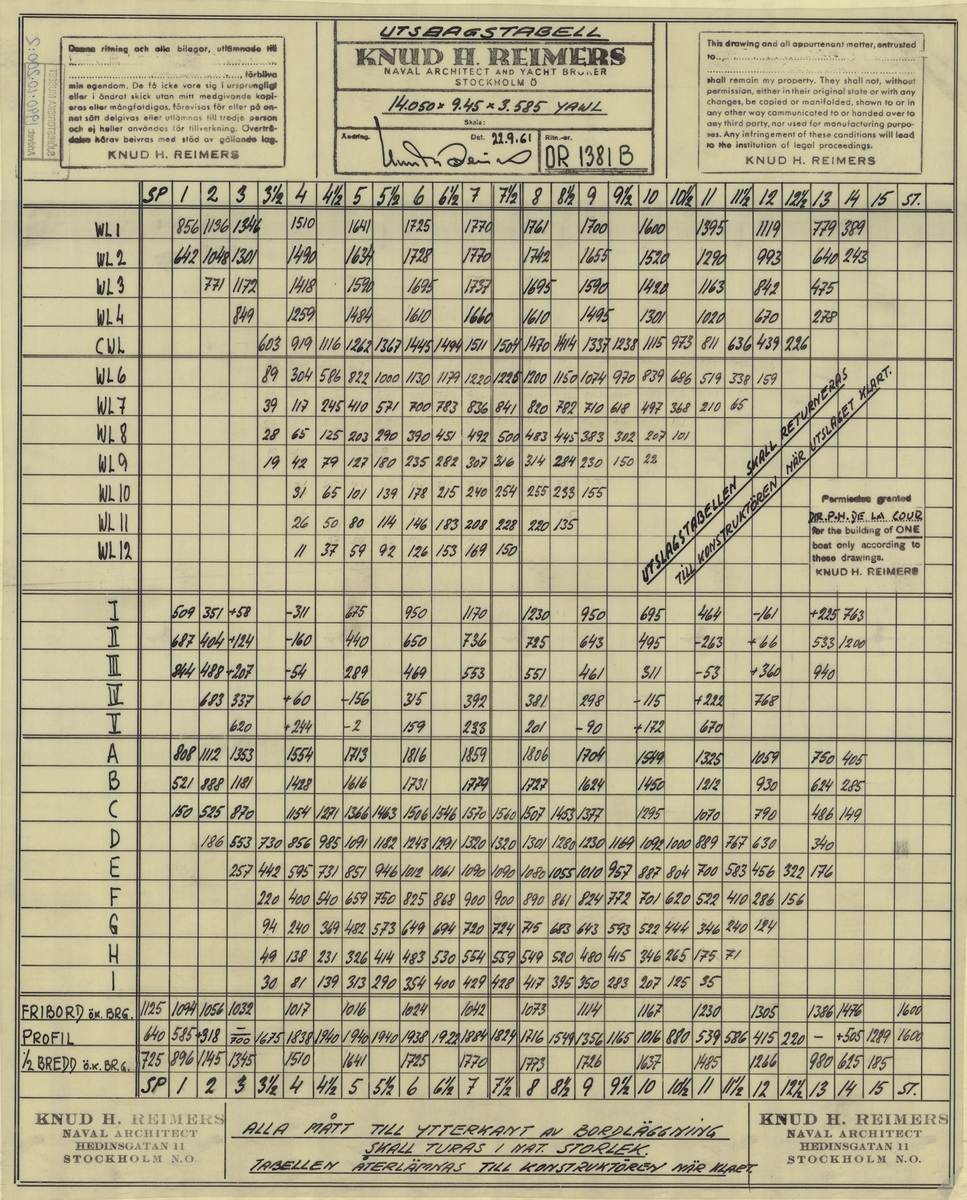 UTSLAGSTABELL
KNUD H. REIMERS
NAVAL ARCHITECT AND YACHT BROKER
STOCKHOLM Ö
14.050 × 9.45 × 3.585 YAWL
Skala:
Ändring. Dat. 22.9.61 Ritn.-nr.
DR 1381 B
Denna ritning och alla bilagor, utlämnade till
förbliva
min egendom. De få icke vare sig i ursprungligt
eller i ändrat skick utan mitt medgivande kopi-
eras eller mångfaldigas, förevisas för eller på an-
nat sätt delgivas eller utlämnas till tredje person
och ej heller användas för tillverkning. Överträ-
delse härav beivras med stöd av gällande lag.
KNUD H. REIMERS
This drawing and all appurtenant matter, entrusted
to
shall remain my property. They shall not, without
permission, either in their original state or with any
changes, be copied or manifolded, shown to or in
any other way communicated to or handed over to
any third party, nor used for manufacturing purpo-
ses. Any infringement of these conditions will lead
to the institution of legal proceedings.
KNUD H. REIMERS
SP 1 2 3 3½ 4 4½ 5 5½ 6 6½ 7 7½ 8 8½ 9 9½ 10 10½ 11 11½ 12 12½ 13 14 15 ST.
WL 1 856 1136 1346 1510 1641 1725 1770 1761 1700 1600 1395 1119 779 389
WL 2 642 1048 1301 1490 1634 1728 1770 1742 1655 1520 1290 993 640 243
WL 3 771 1172 1418 1590 1695 1737 1695 1590 1420 1163 842 475
WL 4 849 1259 1484 1610 1660 1610 1495 1301 1020 670 278
CWL 603 919 1116 1262 1367 1445 1494 1511 1504 1470 1414 1337 1238 1115 973 811 636 439 226
WL 6 89 304 586 822 1000 1130 1179 1220 1225 1200 1150 1074 970 839 686 519 338 159
WL 7 39 117 245 410 571 700 783 836 841 820 782 710 618 497 368 210 65
WL 8 28 65 125 203 290 390 451 492 500 483 445 383 302 207 101
WL 9 19 42 79 127 180 235 282 307 316 314 284 230 150 22
WL 10 31 65 101 139 178 215 240 254 255 233 155
WL 11 26 50 80 114 146 183 208 228 220 135
WL 12 11 37 59 92 126 153 169 150
UTSLAGSTABELLEN SKALL RETURNERAS
TILL KONSTRUKTÖREN NÄR UTSLAGET KLART.
Permission granted
DIR. P.H. DE LA COUR
for the building of ONE
boat only according to
these drawings.
KNUD H. REIMERS
I 509 351 +58 -311 675 950 1170 1230 950 695 464 -161 +225 763
II 687 404 +124 -160 440 650 736 725 643 495 -263 +66 533 1200
III 844 488 +207 -54 289 469 553 551 461 311 -53 +360 940
IV 683 337 +60 -156 315 392 381 298 -115 +222 768
V 620 +244 -2 159 233 201 -90 +172 670
A 808 1112 1353 1554 1713 1816 1859 1806 1704 1549 1325 1059 750 405
B 521 888 1181 1428 1616 1731 1779 1727 1624 1450 1212 930 624 285
C 150 525 870 1154 1271 1366 1463 1506 1546 1570 1560 1507 1453 1377 1295 1070 790 486 149
D 186 553 730 856 985 1091 1182 1243 1291 1320 1320 1301 1280 1230 1169 1092 1000 889 767 630 340
E 257 442 595 731 851 946 1012 1061 1090 1090 1080 1055 1010 957 887 804 700 583 456 322 176
F 220 400 540 659 750 825 868 900 900 890 861 824 772 701 620 522 410 286 156
G 94 240 369 482 573 649 694 720 724 715 683 643 593 522 444 346 240 124
H 49 138 231 326 414 483 530 554 559 549 520 480 415 346 265 175 71
I 30 81 139 313 290 354 400 429 428 417 395 350 283 207 125 35
FRIBORD Ö.K. BRG. 1125 1094 1056 1032 1017 1016 1024 1042 1073 1114 1167 1230 1305 1386 1476 1600
PROFIL 640 585 +318 700 1675 1838 1940 1940 1940 1938 1922 1884 1824 1716 1549 1356 1165 1016 880 539 586 415 220 - +505 1289 1600
½ BREDD Ö.K. BRG. 725 896 1145 1345 1510 1641 1725 1770 1773 1726 1637 1485 1266 980 625 185
SP 1 2 3 3½ 4 4½ 5 5½ 6 6½ 7 7½ 8 8½ 9 9½ 10 10½ 11 11½ 12 12½ 13 14 15 ST.
KNUD H. REIMERS
NAVAL ARCHITECT
HEDINSGATAN 11
STOCKHOLM N.O.
ALLA MÅTT TILL YTTERKANT AV BORDLÄGGNING
SKALL TURAS I NAT. STORLEK.
TABELLEN ÅTERLÄMNAS TILL KONSTRUKTÖREN NÄR KLART.
KNUD H. REIMERS
NAVAL ARCHITECT
HEDINSGATAN 11
STOCKHOLM N.O.